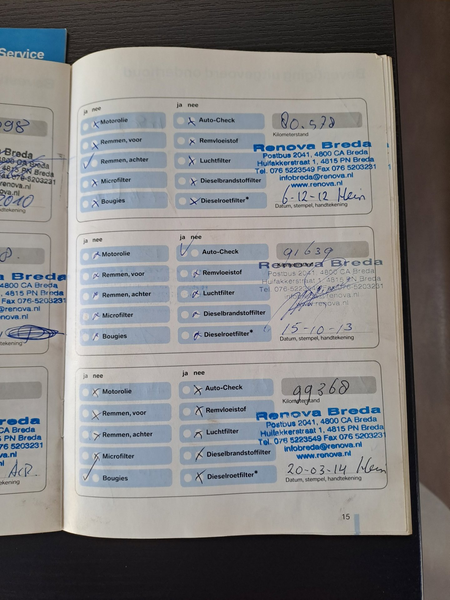 Service
098
Breda
2010
8.
Breda
4800 CA Breda
4815 PN Breda
Fax 076-5203231
renova.nl
reda
CA Breda
PN Breda
nl
ja nee
ja nee
Motorolie
Auto-Check
80.578
Kilometerstand
Remmen, voor
Remvloeistof
Renova Breda
Postbus 2041, 4800 CA Breda
Huifakkerstraat 1, 4815 PN Breda
Tel. 076 5223549 Fax 076 5203231
infobreda@renova.nl
www.renova.nl
Remmen, achter
Luchtfilter
Microfilter
Dieselbrandstoffilter
Bougies
Dieselroetfilter*
6-12-12
Datum, stempel, handtekening
ja nee
ja nee
Motorolie
Auto-Check
91639
Remmen, voor
Remvloeistof
Renova Breda
Postbus 2041, 4800 CA Breda
Huifakkerstraat 1, 4815 PN Breda
Remmen, achter
Luchtfilter
Microfilter
Dieselbrandstoffilter
Bougies
Dieselroetfilter*
15-10-13
Datum, stempel, handtekening
ja nee
ja nee
Motorolie
Auto-Check
99368
Kilometerstand
Remmen, voor
Remvloeistof
Renova Breda
Postbus 2041, 4800 CA Breda
Huifakkerstraat 1, 4815 PN Breda
Tel. 076 5223549 Fax 076 5203231
infobreda@renova.nl
www.renova.nl
Remmen, achter
Luchtfilter
Microfilter
Dieselbrandstoffilter
Bougies
Dieselroetfilter*
20-03-14
Datum, stempel, handtekening
15